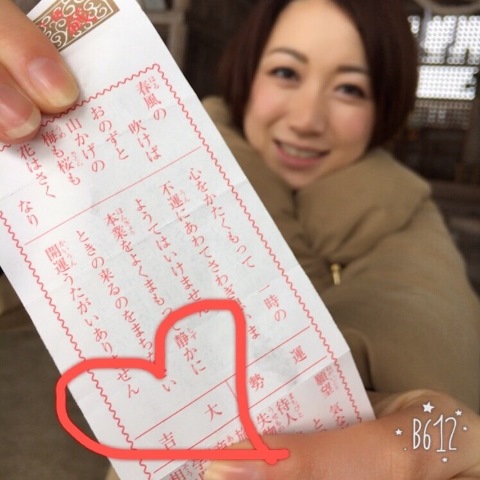 春風の
吹けば
おのずと
山かげの
梅も桜も
花はさく
なり
心をかたくもって
不運にあわてさわぎ
ようではいけません
本業をよくまもっ
静かに
ときの来るのをまち
い
開運うたがいありません
一時の
運勢
大吉
願望
待人
失物
B612